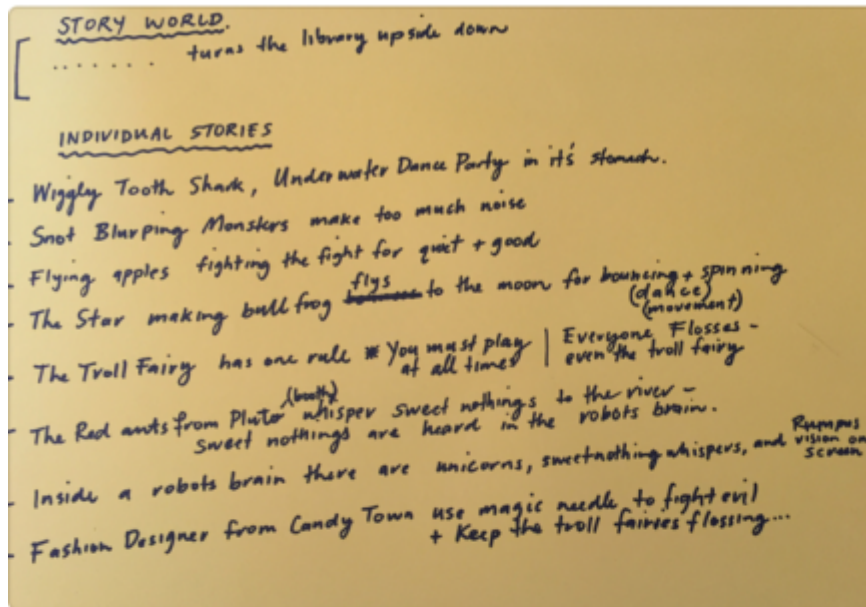 STORY WORLD.
....... turns the library upside down
INDIVIDUAL STORIES
- Wiggly Tooth Shark, Underwater Dance Party in it's stomach.
- Snot Blurping Monsters make too much noise
- Flying apples fighting the fight for quiet + good
- The Star making bull frog flys to the moon for bouncing + spinning
(dance)
(movement)
- The Troll Fairy has one rule * You must play | Everyone Flosses -
at all times even the troll fairy
- The Red ants from Pluto whisper sweet nothings to the river -
sweet nothings are heard in the robots brain.
- Inside a robots brain there are unicorns, sweet nothing whispers, and Rumpus
vision on
screen
- Fashion Designer from Candy Town use magic needle to fight evil
+ Keep the troll fairies flossing...